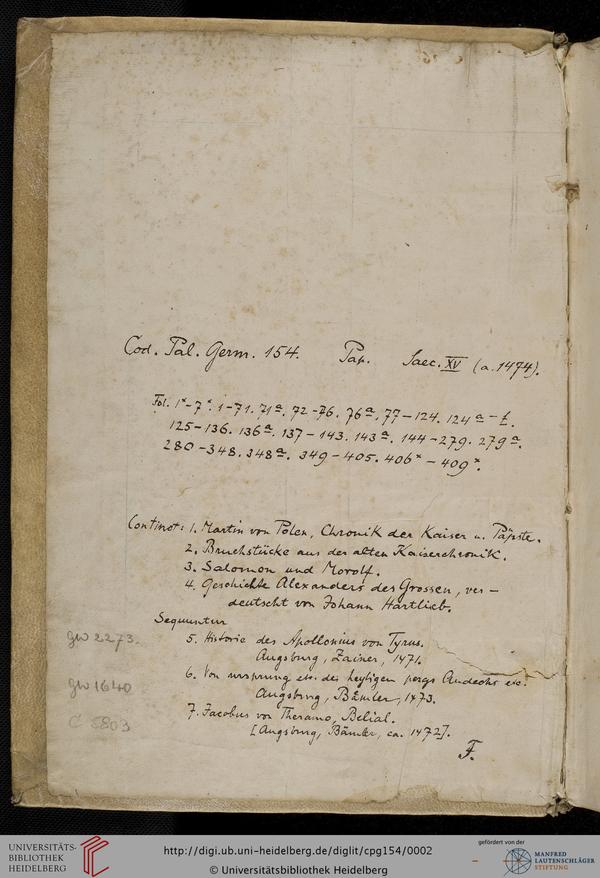 Cod. Pal. Germ. 154. Pap. Saec. XV (a. 1474).
Fol. 1*-7*. 1-71. 71a. 72-76. 76a. 77-124. 124a-f.
125-136. 136a. 137-143. 143a. 144-279. 279a.
280-348. 348a. 349-405. 406*-409*.
Continet: 1. Martin von Polen, Chronik der Kaiser u. Päpste.
2. Bruchstücke aus der alten Kaiserchronik.
3. Salomon und Morolf.
4. Geschichte Alexanders des Grossen, ver-
deutscht von Johann Hartlieb.
Sequuntur
5. Historie des Apollonius von Tyrus.
Augsburg, Zainer, 1471.
GW 2273.
6. Von ursprung etc. des heyligen pergs Andechs etc.
GW 1640
Augsburg, Bämler, 1473.
7. Jacobus von Theramo, Belial.
C 5803
[Augsburg, Bämler, ca. 1472].
F.
UNIVERSITÄTS-
BIBLIOTHEK
HEIDELBERG
http://digi.ub.uni-heidelberg.de/diglit/cpg154/0002
© Universitätsbibliothek Heidelberg
gefördert von der
MANFRED
LAUTENSCHLÄGER
STIFTUNG